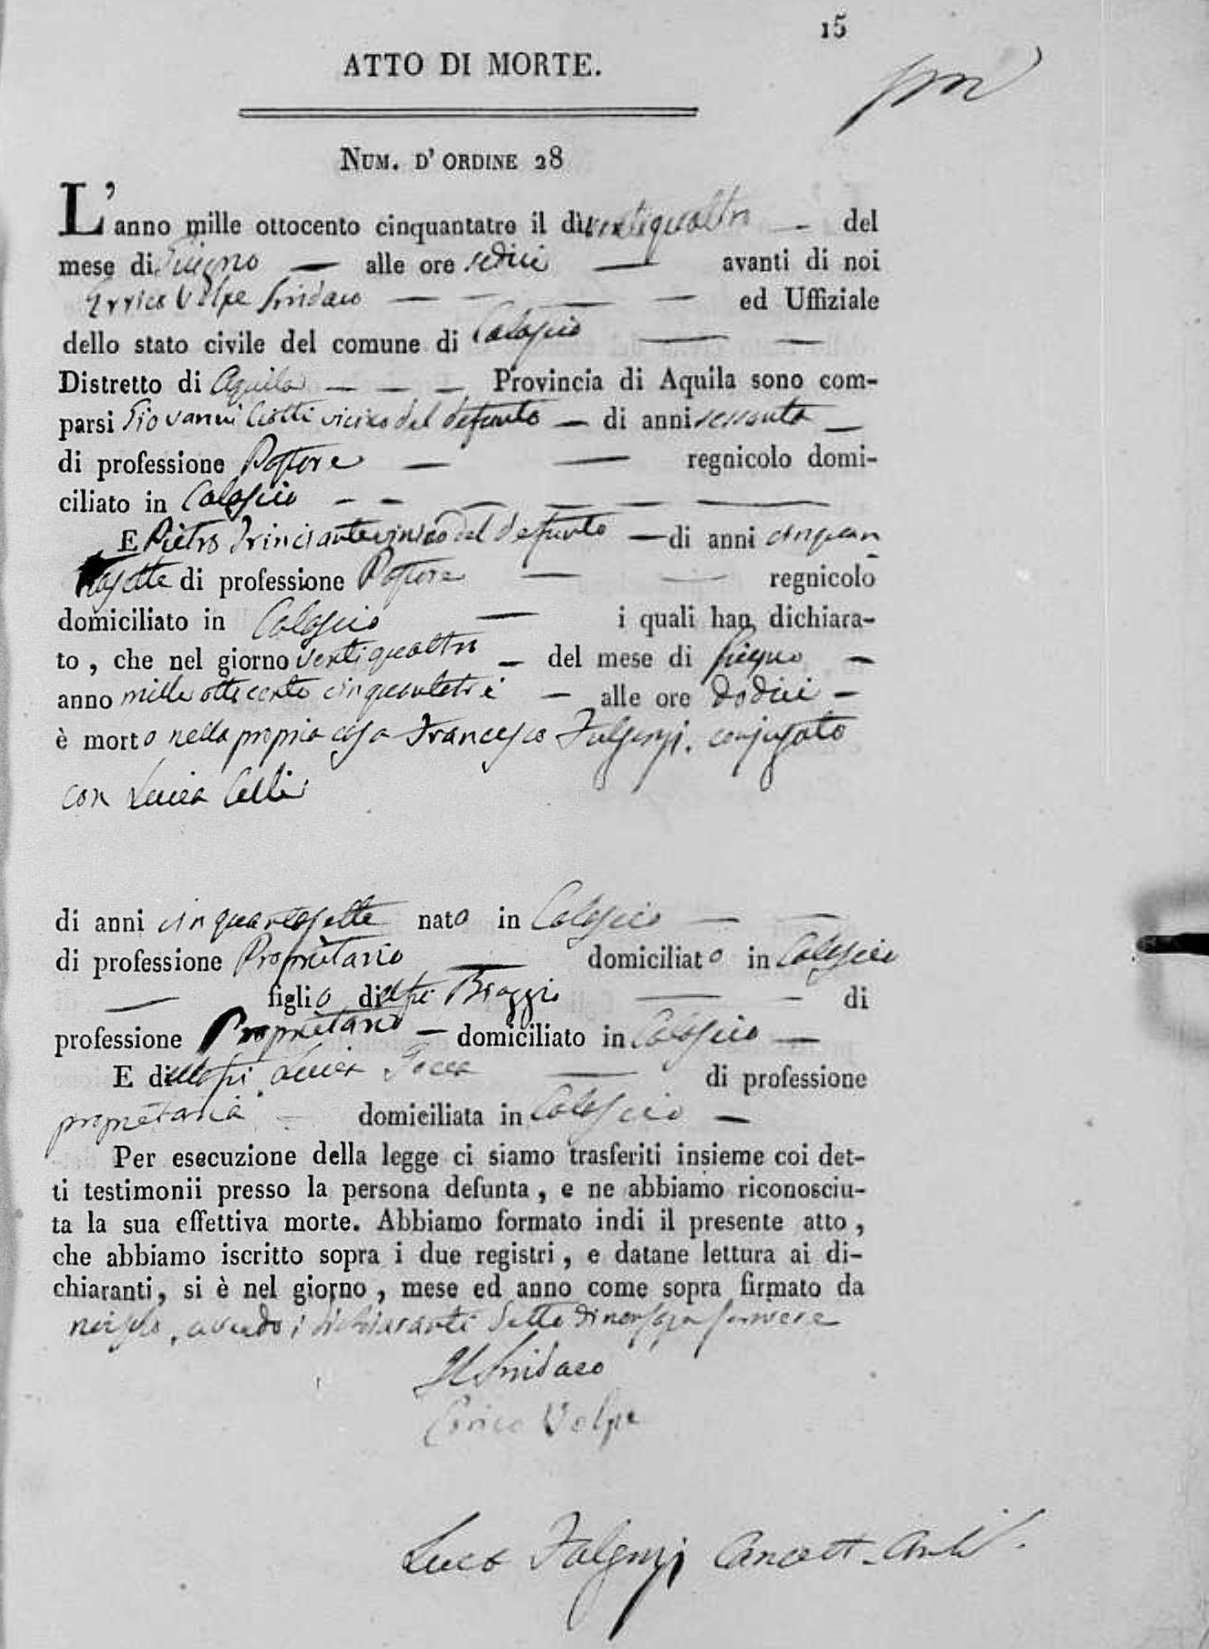 15
ATTO DI MORTE.
NUM. D' ORDINE 28
L'anno mille ottocento cinquantatre il dì ventiquattro — del
mese di Giugno — alle ore sedici — avanti di noi
Errico Volpe Sindaco — — — — ed Uffiziale
dello stato civile del comune di Calascio — —
Distretto di Aquila — — — Provincia di Aquila sono com-
parsi Giovanni Ciotti vicino del defunto — di anni sessanta —
di professione Pastore — — regnicolo domi-
ciliato in Calascio — — — — — —
E Pietro vicino del defunto — di anni cinquan
tasette di professione Pastore — — regnicolo
domiciliato in Calascio — i quali han dichiara-
to, che nel giorno ventiquattro — del mese di Giugno —
anno mille ottocento cinquantatrè — alle ore dodici —
è morto nella propria casa Francesco Fulgenzj. conjugato
con Lucia Celli
di anni cinquantasette nato in Calascio — —
di professione Proprietario — domiciliato in Calascio
— figlio di Biaggio — — di
professione Proprietario — domiciliato in Calascio —
E di Lucia — di professione
proprietaria — domiciliata in Calascio —
Per esecuzione della legge ci siamo trasferiti insieme coi det-
ti testimonii presso la persona defunta, e ne abbiamo riconosciu-
ta la sua effettiva morte. Abbiamo formato indi il presente atto,
che abbiamo iscritto sopra i due registri, e datane lettura ai di-
chiaranti, si è nel giorno, mese ed anno come sopra firmato da
noi solo, avendo i dichiaranti detto di non saper scrivere
Il Sindaco
Errico Volpe
Luca Fulgenzj Cancell.